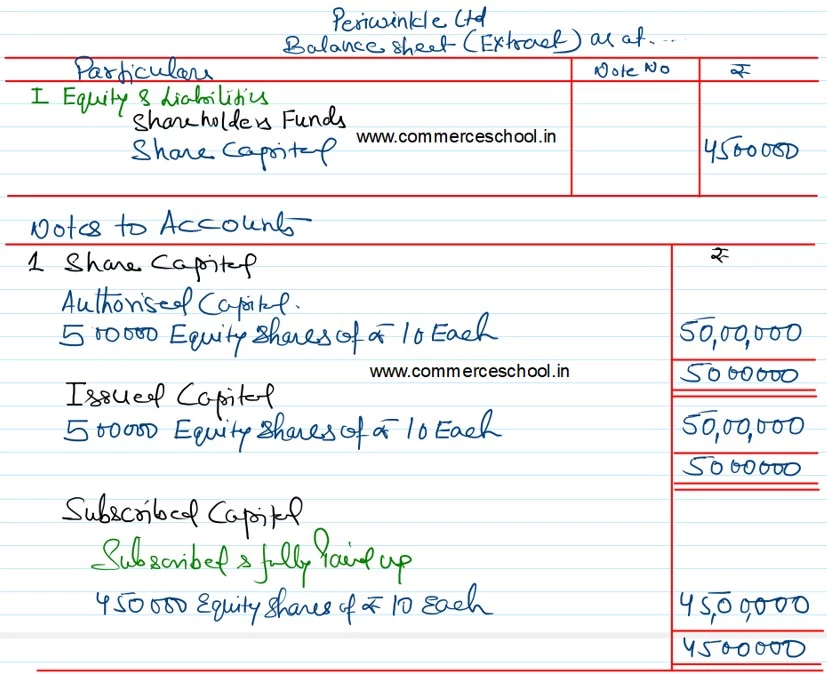 Periwinkle Ltd
Balance sheet (Extract) as at....
Particulars Note No ₹
I Equity & Liabilities
Shareholders Funds
www.commerceschool.in
Share Capital 4500000
Notes to Accounts
1 Share Capital ₹
Authorised Capital.
500000 Equity Shares of ₹ 10 Each 50,00,000
www.commerceschool.in 5000000
Issued Capital
500000 Equity Shares of ₹ 10 Each 50,00,000
5000000
Subscribed Capital
Subscribed & fully Paid up
450000 Equity Shares of ₹ 10 Each 45,00,000
4500000